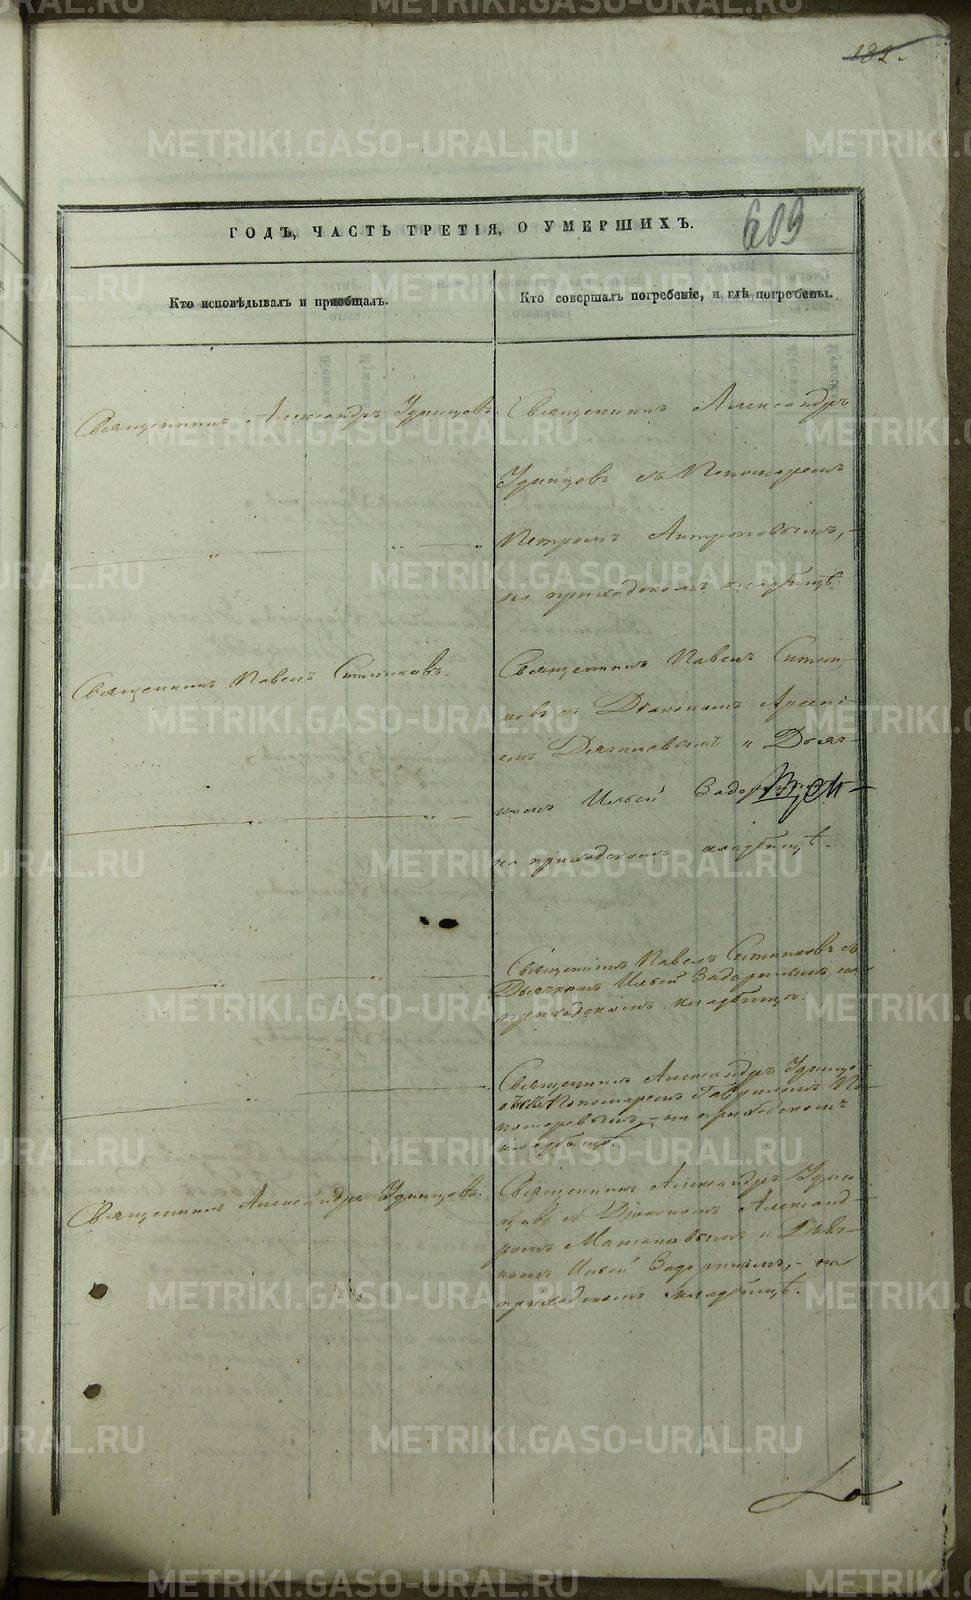 182.
609
ГОДЪ, ЧАСТЬ ТРЕТІЯ, О УМЕРШИХЪ.
Кто исповѣдывалъ и приобщалъ.
Кто совершалъ погребеніе, и гдѣ погребены.
Священникъ Александръ Удинцовъ.
Священникъ Александръ
Удинцовъ съ Пономаремъ
Петромъ Антроповымъ, –
на приходскомъ кладбищѣ.
Священникъ Павелъ Ситниковъ.
Священникъ Павелъ Ситни-
ковъ съ Діакономъ Арсені-
емъ Дягилевымъ и Дьяч-
комъ Ильей
на приходскомъ кладбищѣ.
Священникъ Павелъ Ситниковъ съ
Дьячкомъ Ильей Задоринымъ, на
приходскомъ кладбищѣ.
Священникъ Александръ Удинцо-
въ съ Пономаремъ Гавриломъ По-
номаревымъ, – на приходскомъ
кладбищѣ.
Священникъ Александръ Удинцовъ.
Священникъ Александръ Удин-
цовъ съ Діакономъ Александ-
ромъ и Дьяч-
комъ Ильей Задоринымъ, – на
приходскомъ кладбищѣ.
METRIKI.GASO-URAL.RU